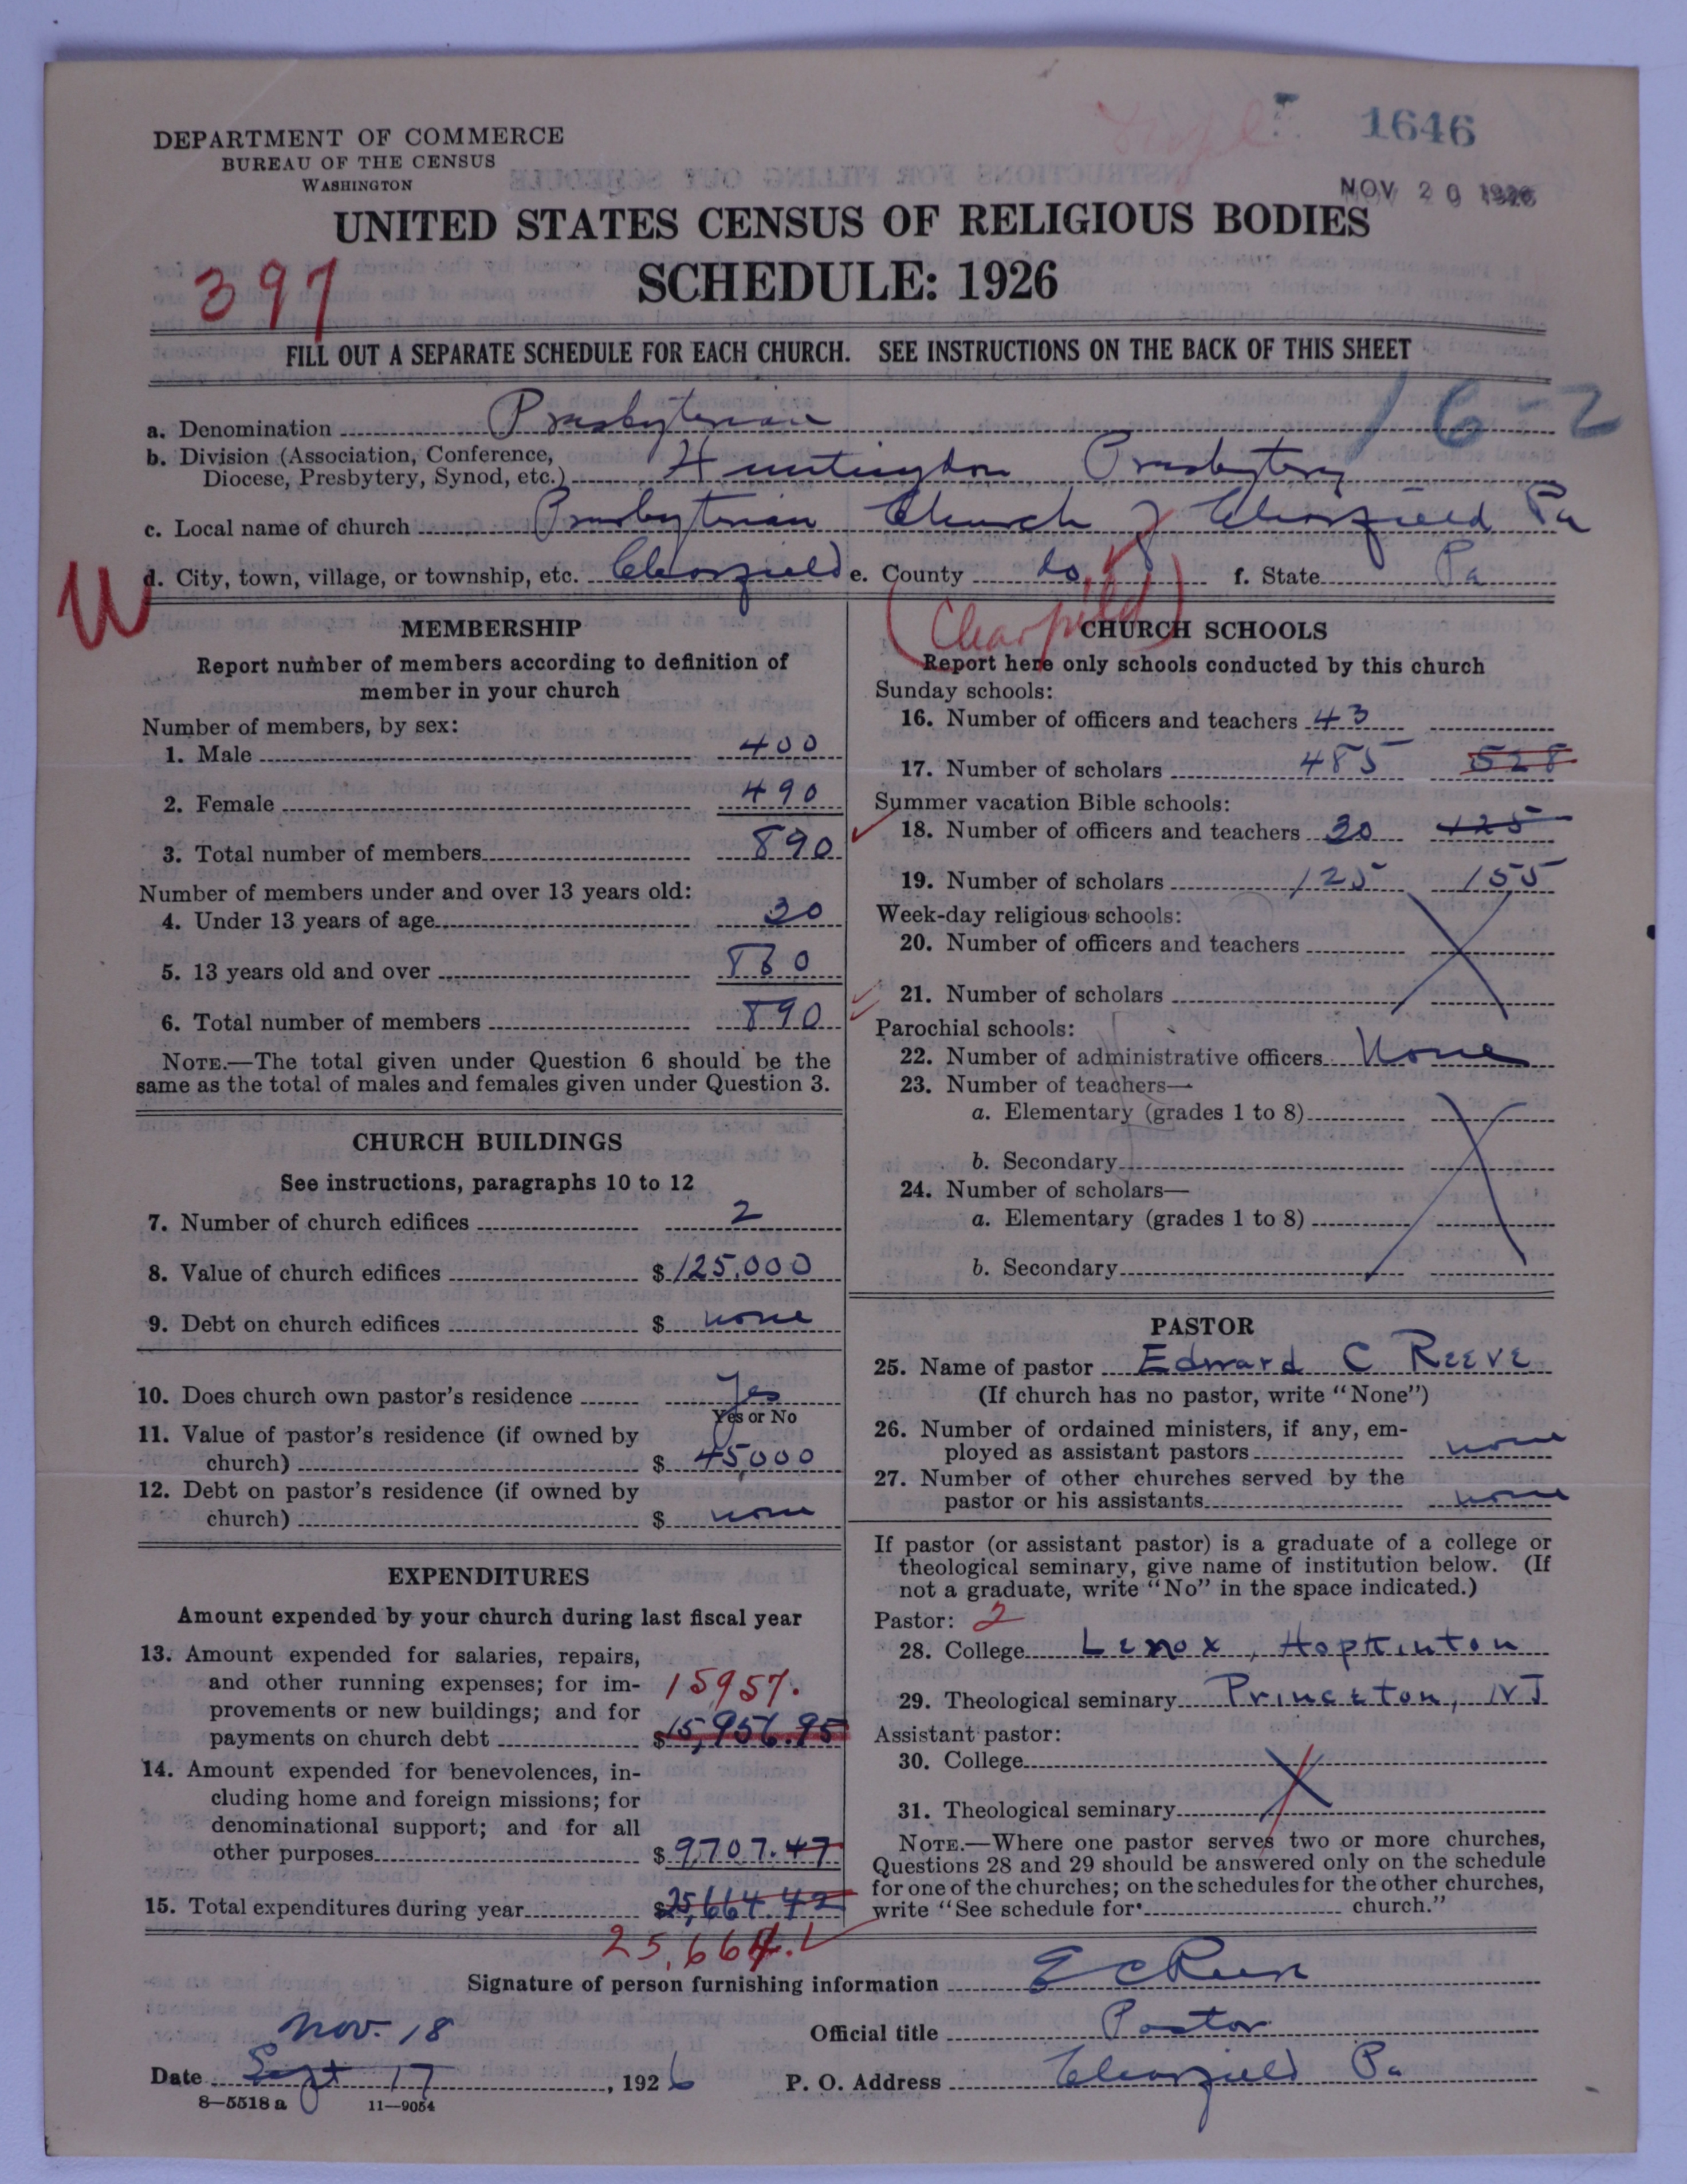 1646
DEPARTMENT OF COMMERCE
BUREAU OF THE CENSUS
WASHINGTON
NOV 20 1926
UNITED STATES CENSUS OF RELIGIOUS BODIES
397
SCHEDULE: 1926
FILL OUT A SEPARATE SCHEDULE FOR EACH CHURCH. SEE INSTRUCTIONS ON THE BACK OF THIS SHEET
16-2
a. Denomination Presbyterian
b. Division (Association, Conference,
Diocese, Presbytery, Synod, etc.) Huntingdon Presbytery
c. Local name of church Presbyterian Church of Clearfield Pa
W d. City, town, village, or township, etc. Clearfield e. County do. f. State Pa
(Clearfield)
MEMBERSHIP
Report number of members according to definition of
member in your church
Number of members, by sex:
1. Male 400
2. Female 490
3. Total number of members 890
Number of members under and over 13 years old:
4. Under 13 years of age 30
5. 13 years old and over 860
6. Total number of members 890
NOTE.—The total given under Question 6 should be the
same as the total of males and females given under Question 3.
CHURCH BUILDINGS
See instructions, paragraphs 10 to 12
7. Number of church edifices 2
8. Value of church edifices $125,000
9. Debt on church edifices $ none
10. Does church own pastor's residence Yes
Yes or No
11. Value of pastor's residence (if owned by
church) $ 45,000
12. Debt on pastor's residence (if owned by
church) $ none
EXPENDITURES
Amount expended by your church during last fiscal year
13. Amount expended for salaries, repairs,
and other running expenses; for im-
provements or new buildings; and for
payments on church debt $15,956.95
15957.
14. Amount expended for benevolences, in-
cluding home and foreign missions; for
denominational support; and for all
other purposes $9,707.47
15. Total expenditures during year $25,664.42
25,664.
CHURCH SCHOOLS
Report here only schools conducted by this church
Sunday schools:
16. Number of officers and teachers 43
17. Number of scholars 485 528
Summer vacation Bible schools:
18. Number of officers and teachers 30 125
19. Number of scholars 125 155
Week-day religious schools:
20. Number of officers and teachers
21. Number of scholars
Parochial schools:
22. Number of administrative officers None
23. Number of teachers—
a. Elementary (grades 1 to 8)
b. Secondary
24. Number of scholars—
a. Elementary (grades 1 to 8)
b. Secondary
PASTOR
25. Name of pastor Edward C Reeve
(If church has no pastor, write "None")
26. Number of ordained ministers, if any, em-
ployed as assistant pastors none
27. Number of other churches served by the
pastor or his assistants none
If pastor (or assistant pastor) is a graduate of a college or
theological seminary, give name of institution below. (If
not a graduate, write "No" in the space indicated.)
Pastor: 2
28. College Lenox, Hopkinton
29. Theological seminary Princeton, NJ
Assistant pastor:
30. College
31. Theological seminary
NOTE.—Where one pastor serves two or more churches,
Questions 28 and 29 should be answered only on the schedule
for one of the churches; on the schedules for the other churches,
write "See schedule for church."
Signature of person furnishing information E C Reeve
Official title Pastor
Nov. 18
Date Sept 17, 1926 P. O. Address Clearfield Pa
8—5518 a 11—9054